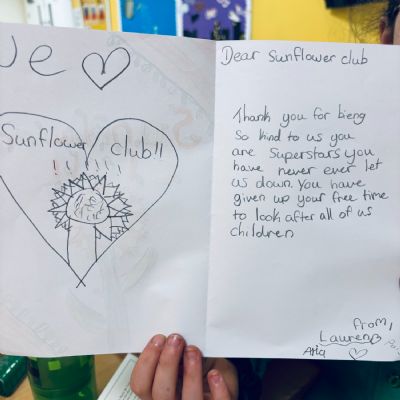 Sunflower club!!
Dear Sunflower club
Thank you for bieng
So kind to us you
are Superstars you
have never ever let
us down. You have
given up your free time
to look after all of us
children
From,
Lauren
Aria